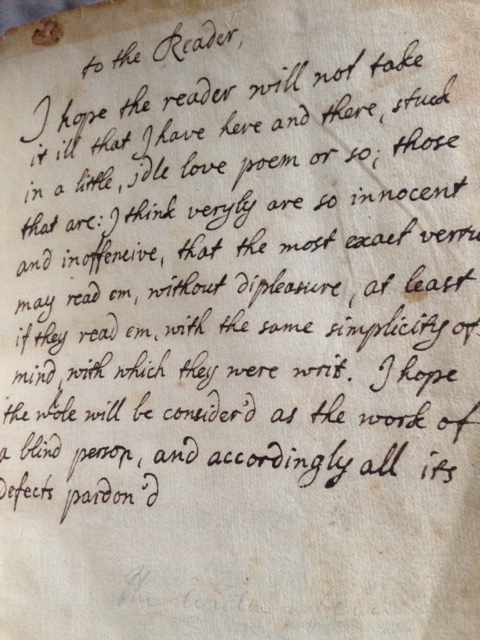 to the Reader,
I hope the reader will not take
it ill that I have here and there, stuck
in a little, idle love poem or so; those
that are: I think veryly are so innocent
and inoffencive, that the most exact vertu
may read em, without dipleasure, at least
if they read em, with the same simplicity of
mind, with which they were writ. I hope
the whole will be consider'd as the work of
a blind person, and accordingly all its
Defects pardon'd
The